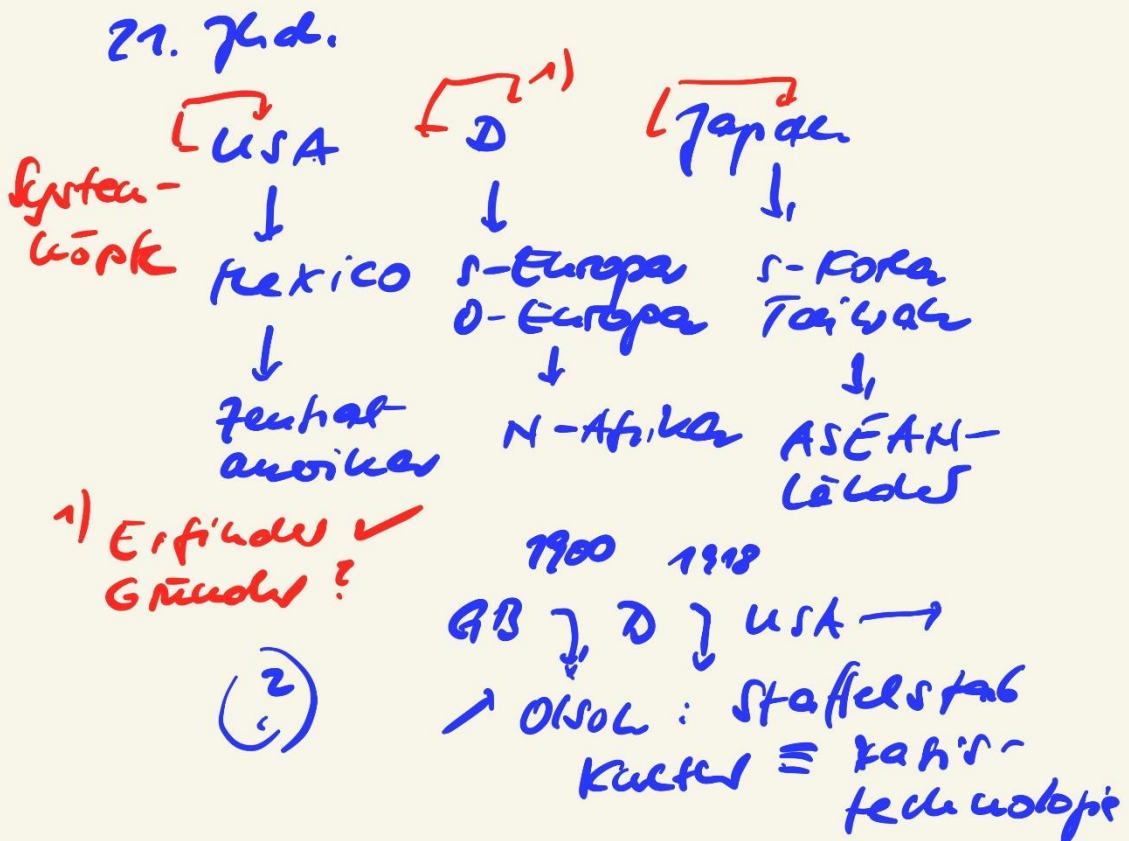 21. Jhd.
1)
USA D Japan
System-
köpfe
Mexico S-Europa S-Korea
O-Europa Taiwan
Zentral- N-Afrika ASEAN-
amerika Länder
1) Erfinder ✓
Gründer ?
1900 1918
GB D USA
2
Olson : Staffelstab
Kultur ≡ Basis-
technologie